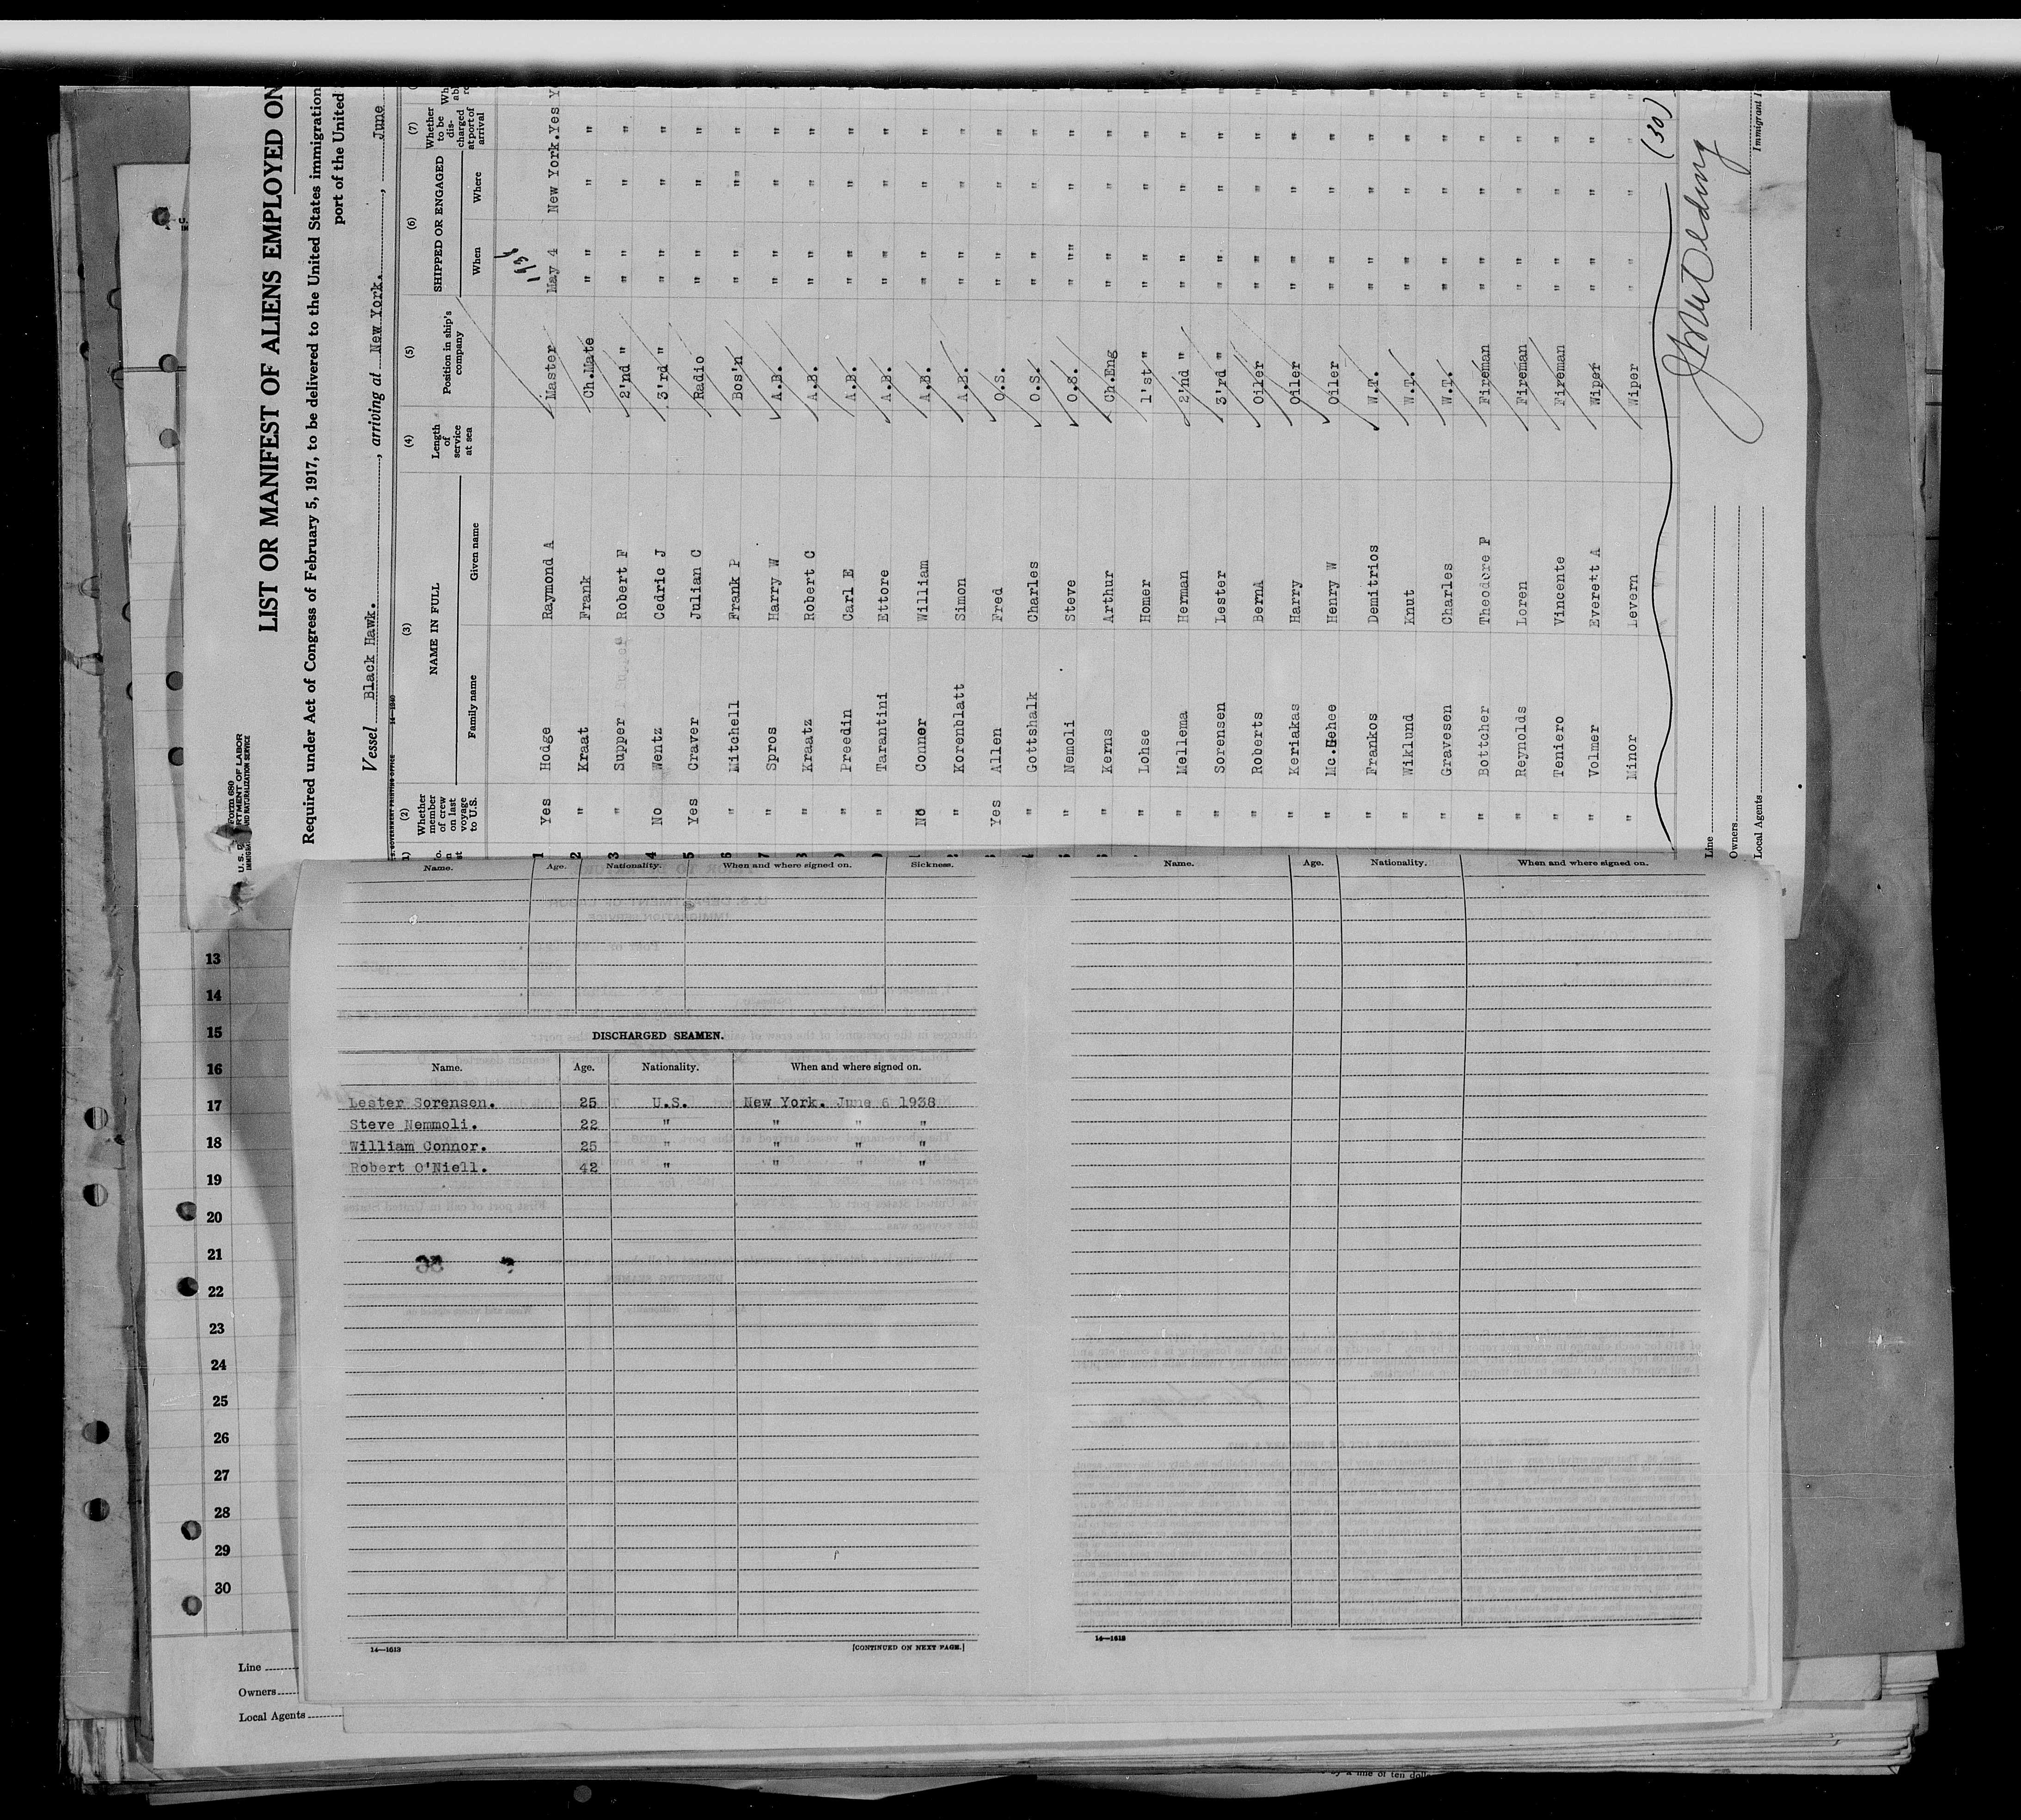 Form 680
U. S. DEPARTMENT OF LABOR
IMMIGRATION AND NATURALIZATION SERVICE
LIST OR MANIFEST OF ALIENS EMPLOYED ON
Required under Act of Congress of February 5, 1917, to be delivered to the United States immigration
port of the United
Vessel Black Hawk. , arriving at New York. , June
U. S. GOVERNMENT PRINTING OFFICE 14—1040
(2) (3) (4) (5) (6) (7)
Whether member of crew on last voyage to U.S. NAME IN FULL Length of service at sea Position in ship's company SHIPPED OR ENGAGED Whether to be discharged at port of arrival
Family name Given name When Where
1 Yes Hodge Raymond A Master May 4 New York. Yes Y
2 " Kraat Frank Ch.Mate " " " "
3 " Supper Robert F 2'nd " " " " "
4 No Wentz Cedric J 3'rd " " " " "
5 Yes Craver Julian C Radio " " " "
6 " Mitchell Frank P Bos'n " " "" "
7 " Spros Harry W A.B. " " " "
8 " Kraatz Robert C A.B. " " " "
9 " Preedin Carl E A.B. " " " "
0 " Tarantini Ettore A.B. " " " "
1 No Conner William A.B. " " " "
2 " Korenblatt Simon A.B. " " " "
3 Yes Allen Fred O.S. " " " "
4 " Gottshalk Charles O.S. " " " "
5 " Nemoli Steve O.S. " "" " "
6 " Kerns Arthur Ch.Eng " " " "
" Lohse Homer 1'st " " " " "
" Mellema Herman 2'nd " " " " "
" Sorensen Lester 3'rd " " " " "
" Roberts BernA Oiler " " " "
" Keriakas Harry Oiler " " " "
" Mc.Gehee Henry W Oiler " " " "
" Frankos Demitrios W.T. " " " "
" Wiklund Knut W.T. " " " "
" Gravesen Charles W.T. " " " "
" Bottcher Theodore P Fireman " " " "
" Reynolds Loren Fireman " " " "
" Teniero Vincente Fireman " " " "
" Volmer Everett A Wiper " " " "
" Minor Levern Wiper " " " "
(30)
Line
Owners
Local Agents
Immigrant I
Name. Age. Nationality. When and where signed on. Sickness.
DISCHARGED SEAMEN.
Name. Age. Nationality. When and where signed on.
Lester Sorensen. 25 U.S. New York. June 6 1938
Steve Nemmoli. 22 " " " "
William Connor. 25 " " "
Robert O'Niell. 42 " " " "
14—1613
[CONTINUED ON NEXT PAGE.]
Name. Age. Nationality. When and where signed on.
14—1613
13
14
15
16
17
18
19
20
21
22
23
24
25
26
27
28
29
30
Line
Owners
Local Agents